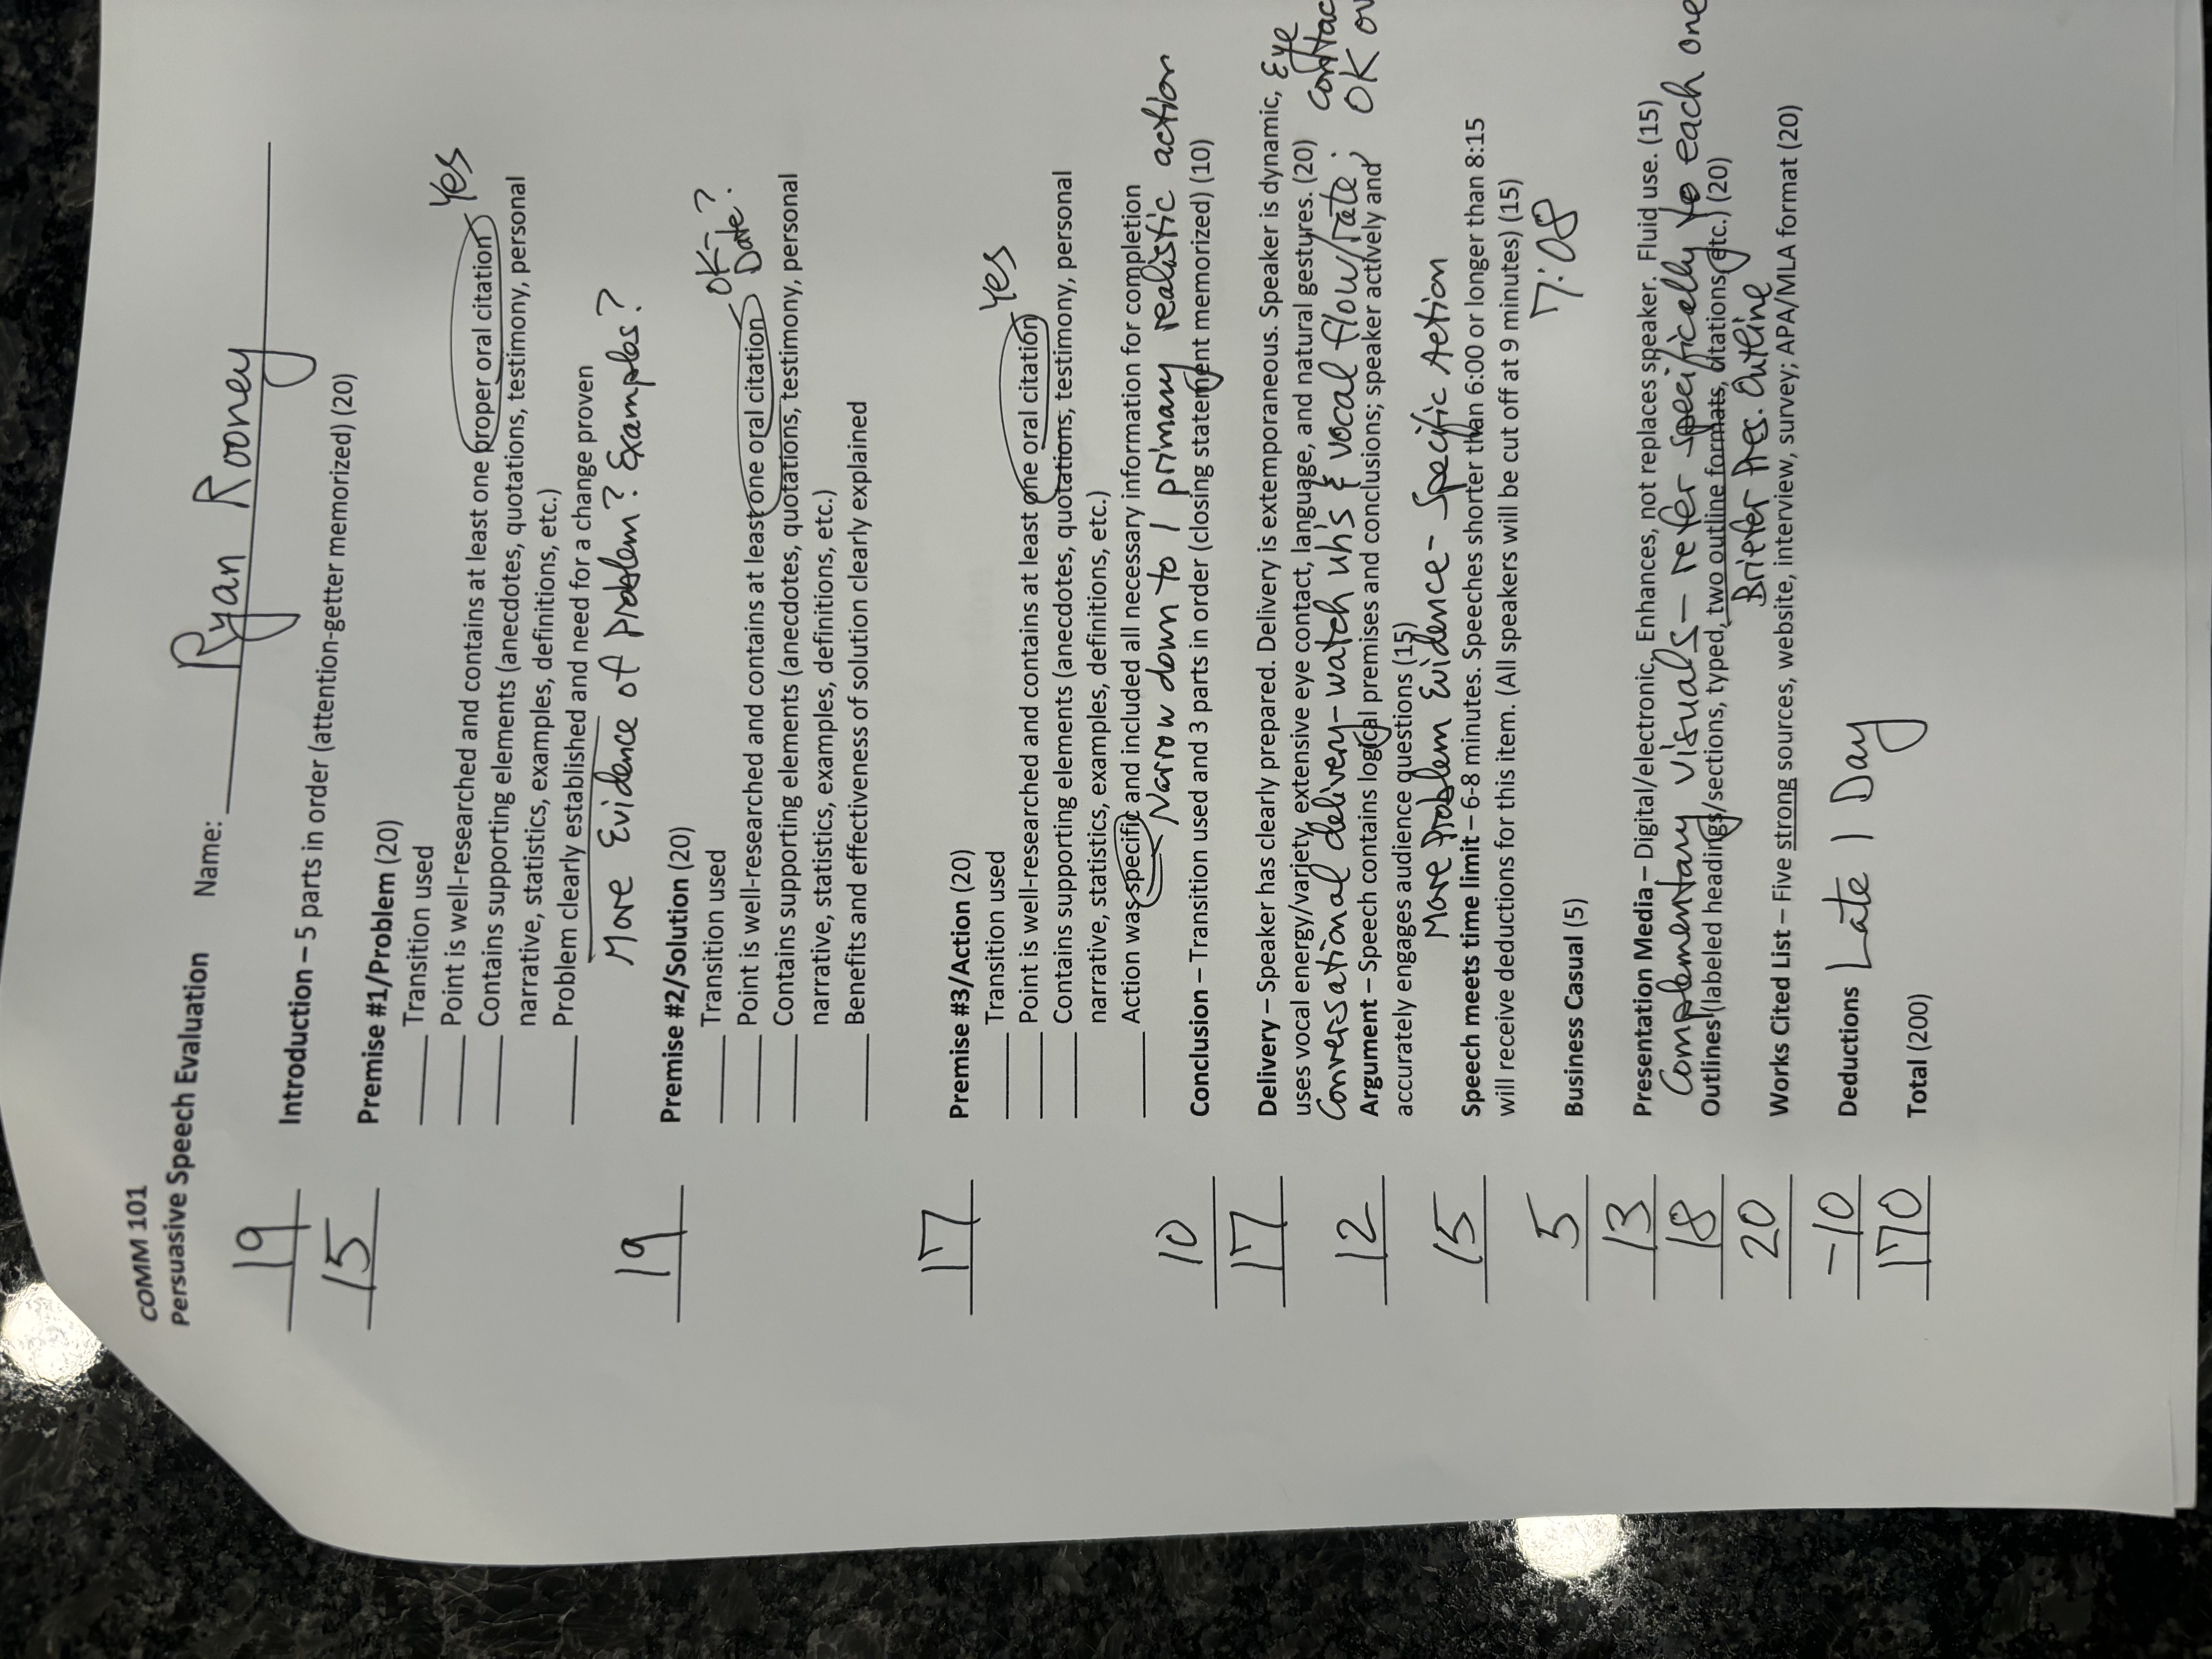 COMM 101
Persuasive Speech Evaluation Name: Ryan Rooney
19
Introduction – 5 parts in order (attention-getter memorized) (20)
15
Premise #1/Problem (20)
Transition used
Point is well-researched and contains at least one proper oral citation Yes
Contains supporting elements (anecdotes, quotations, testimony, personal
narrative, statistics, examples, definitions, etc.)
Problem clearly established and need for a change proven
More Evidence of Problem? Examples?
19
Premise #2/Solution (20)
Transition used
OK- Date?
Point is well-researched and contains at least one oral citation
Contains supporting elements (anecdotes, quotations, testimony, personal
narrative, statistics, examples, definitions, etc.)
Benefits and effectiveness of solution clearly explained
17
Premise #3/Action (20)
Transition used
Yes
Point is well-researched and contains at least one oral citation
Contains supporting elements (anecdotes, quotations, testimony, personal
narrative, statistics, examples, definitions, etc.)
Action was specific and included all necessary information for completion
Narrow down to 1 primary realistic action
10
Conclusion – Transition used and 3 parts in order (closing statement memorized) (10)
17
Delivery – Speaker has clearly prepared. Delivery is extemporaneous. Speaker is dynamic,
uses vocal energy/variety, extensive eye contact, language, and natural gestures. (20)
Conversational delivery-watch uh's & vocal flow/rate; Eye
contac
OK ov
12
Argument – Speech contains logical premises and conclusions; speaker actively and
accurately engages audience questions (15)
More Problem Evidence- Specific Action
15
Speech meets time limit – 6-8 minutes. Speeches shorter than 6:00 or longer than 8:15
will receive deductions for this item. (All speakers will be cut off at 9 minutes) (15)
7:08
5
Business Casual (5)
13
Presentation Media – Digital/electronic. Enhances, not replaces speaker. Fluid use. (15)
Complementary visuals- refer specifically to each one
18
Outlines (labeled headings/sections, typed, two outline formats, citations, etc.) (20)
Briefer Pres. Outline
20
Works Cited List – Five strong sources, website, interview, survey; APA/MLA format (20)
-10
Deductions Late 1 Day
170
Total (200)